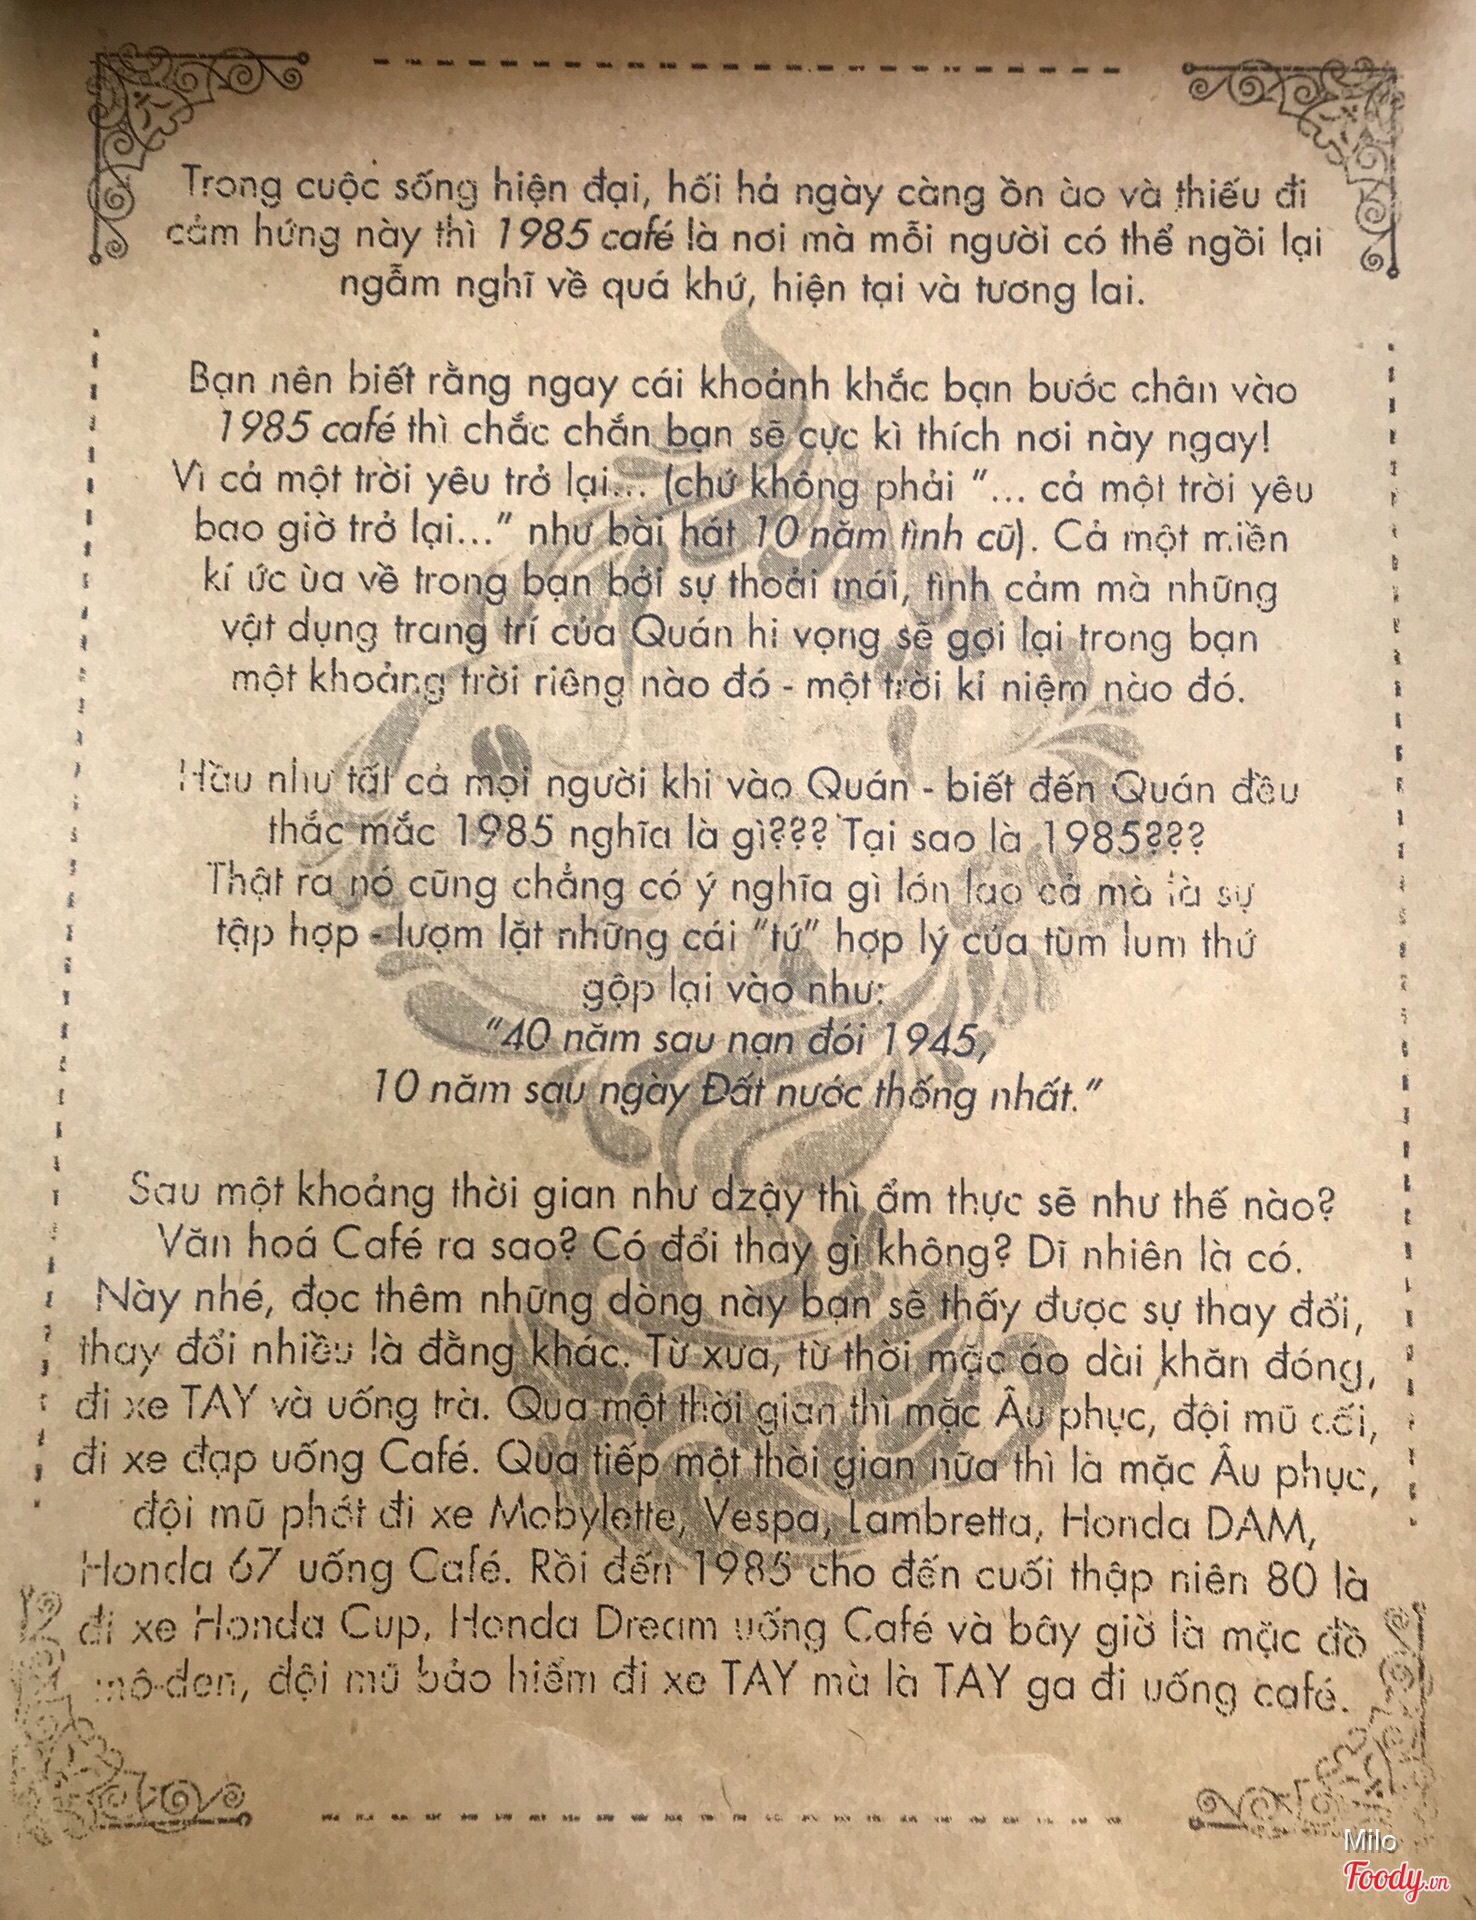 Trong cuộc sống hiện đại, hối hả ngày càng ồn ào và thiếu đi
cảm hứng này thì 1985 café là nơi mà mỗi người có thể ngồi lại
ngẫm nghĩ về quá khứ, hiện tại và tương lai.
Bạn nên biết rằng ngay cái khoảnh khắc bạn bước chân vào
1985 café thì chắc chắn bạn sẽ cực kì thích nơi này ngay!
Vì cả một trời yêu trở lại... (chứ không phải "... cả một trời yêu
bao giờ trở lại..." như bài hát 10 năm tình cũ). Cả một miền
kí ức ùa về trong bạn bởi sự thoải mái, tình cảm mà những
vật dụng trang trí của Quán hi vọng sẽ gợi lại trong bạn
một khoảng trời riêng nào đó - một trời kỉ niệm nào đó.
Hầu như tất cả mọi người khi vào Quán - biết đến Quán đều
thắc mắc 1985 nghĩa là gì??? Tại sao là 1985???
Thật ra nó cũng chẳng có ý nghĩa gì lớn lao cả mà là sự
tập hợp - lượm lặt những cái "tứ" hợp lý của tùm lum thứ
gộp lại vào như:
"40 năm sau nạn đói 1945,
10 năm sau ngày Đất nước thống nhất."
Sau một khoảng thời gian như dzậy thì ẩm thực sẽ như thế nào?
Văn hoá Café ra sao? Có đổi thay gì không? Dĩ nhiên là có.
Này nhé, đọc thêm những dòng này bạn sẽ thấy được sự thay đổi,
thay đổi nhiều là đằng khác. Từ xưa, từ thời mặc áo dài khăn đóng,
đi xe TAY và uống trà. Qua một thời gian thì mặc Âu phục, đội mũ cối,
đi xe đạp uống Café. Qua tiếp một thời gian nữa thì là mặc Âu phục,
đội mũ phớt đi xe Mobylette, Vespa, Lambretta, Honda DAM,
Honda 67 uống Café. Rồi đến 1985 cho đến cuối thập niên 80 là
đi xe Honda Cup, Honda Dream uống Café và bây giờ là mặc đồ
mô-đen, đội mũ bảo hiểm đi xe TAY mà là TAY ga đi uống café.
Milo
Foody.vn